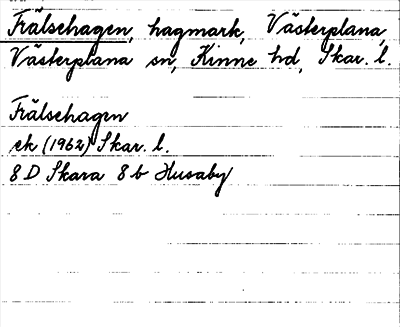 Frälsehagen, hagmark, Västerplana,
Västerplana sn, Kinne hd, Skar. l.
Frälsehagen
ek (1962) Skar. l.
8 D Skara 8 b Husaby